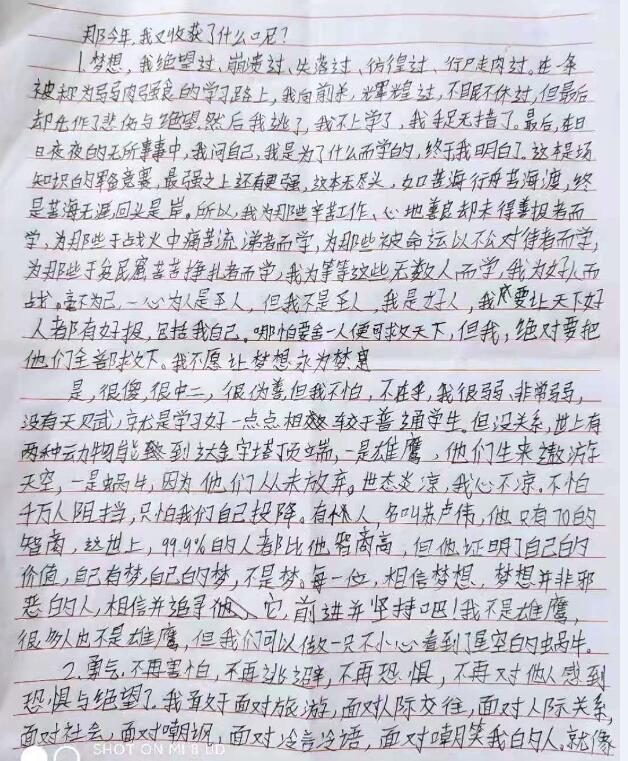 那今年,我又收获了什么呢?
1.梦想,我绝望过、崩溃过、失落过、彷徨过、行尸走肉过。在一条
被称为弱肉强食的学习路上,我向前并、辉煌过,不眠不休过,但最后
却化作了悲伤与绝望。然后我逃了,我不上学了,我手足无措了。最后,在日
日夜夜的无所事事中,我问自己,我是为了什么而学的,终于我明白了。这本是场
知识的军备竞赛,最强之上还有更强,这本无尽头,如苦海行舟苦海渡,终
是苦海无涯回头是岸。所以,我为那些辛苦工作、心地善良却未得善报者而
学,为那些于战火中痛苦流涕者而学,为那些被命运以不公对待者而学,
为那些于贫民窟苦苦挣扎者而学,我为等等这些无数人而学,我为好人而
战。毫不为己,一心为人是圣人,但我不是圣人,我是好人,我要让天下好
人都有好报,包括我自己。哪怕要舍一人便可救天下,但我,绝对要把
他们全部救下。我不愿让梦想永为梦想
是,很傻,很中二,很伪善但我不怕,不在乎,我很弱、非常弱,
没有天赋,就是学习好一点点相较于普通学生。但没关系,世上有
两种动物能到达金字塔顶端,一是雄鹰,他们生来遨游
天空,一是蜗牛,因为他们从未放弃。世态炎凉,我心不凉。不怕
千万人阻挡,只怕我们自己投降。有人名叫苏卢伟,他只有70的
智商,这世上,99.9%的人都比他智商高,但他证明了自己的
价值,自己有梦,自己的梦,不是梦。每一位,相信梦想,梦想并非邪
恶的人,相信并追寻它,前进并坚持吧!我不是雄鹰,
很多人也不是雄鹰,但我们可以做一只不小心看到了星空的蜗牛。
2.勇气,不再害怕,不再逃避,不再恐惧,不再对他人感到
恐惧与绝望了。我敢于面对旅游,面对人际交往,面对人际关系,
面对社会,面对嘲讽,面对冷言冷语,面对嘲笑我的人。就像
SHOT ON MI 8 UD